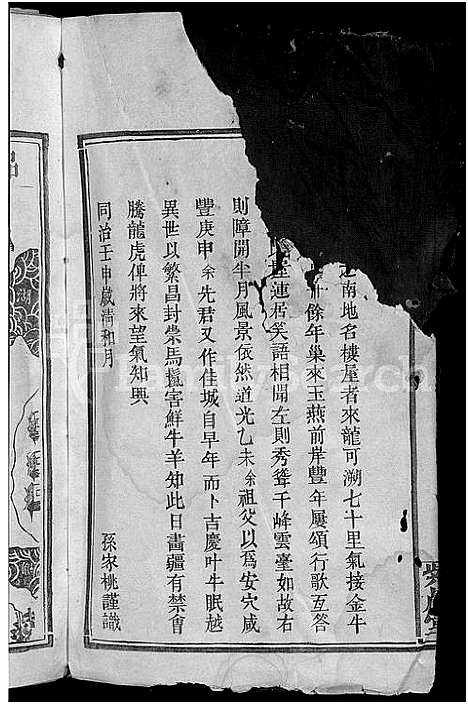 南地名樓屋者來龍可溯七十里氣接金牛
餘年巢來玉燕前岸豐年屢頌行歌互答
連居笑語相聞左則秀聳千峰雲臺如故右
則障開半月風景依然道光乙未余祖父以爲安穴咸
豐庚申余先君又作佳城自早年而卜吉慶叶牛眠越
異世以繁昌封崇馬鬣害鮮牛羊知此日畫疆有禁會
騰龍虎俾將來望氣知興
同治壬申歲清和月
孫家桃謹識
FamilySearch